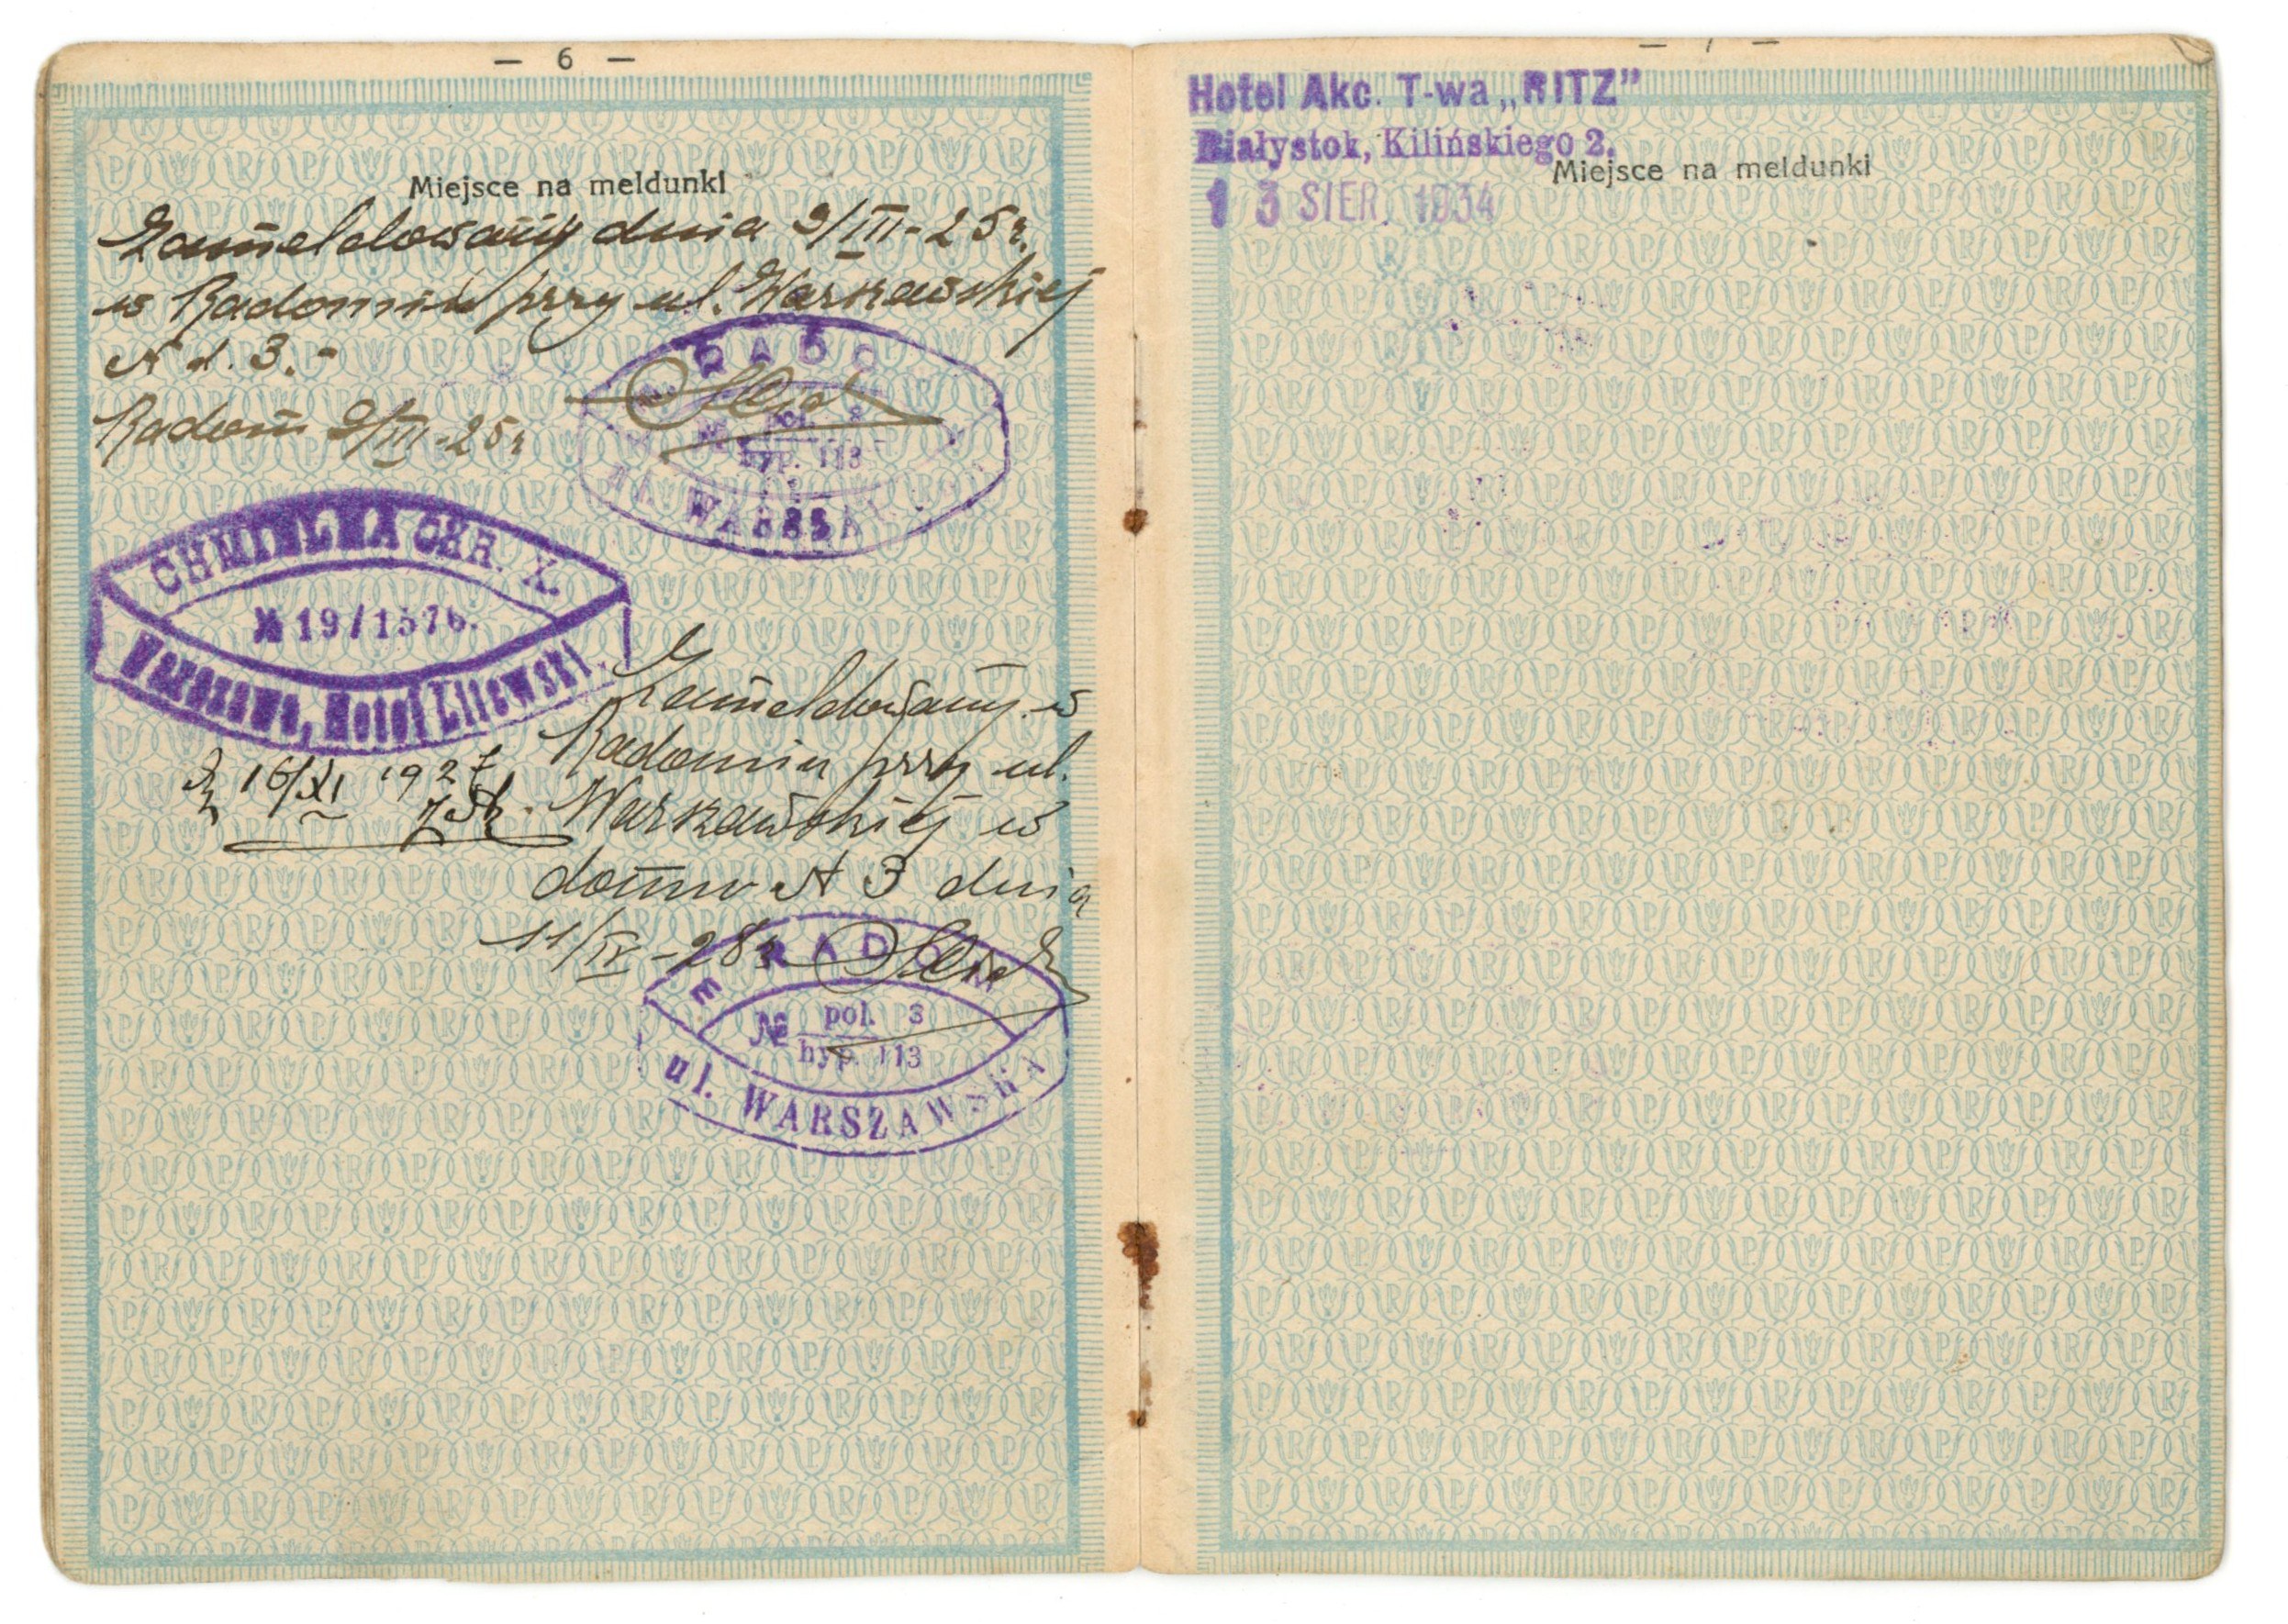 — 6 —
Miejsce na meldunki
Zameldowany dnia 9/III - 25 r.
w Radomiu przy ul. Warszawskiej
N d. 3. -
Radom 9/III - 25 r
RADO
pol. 3
hyp. 113
ul. WARSZA
CHMIELNA OKR. X.
№ 19/1576.
Warszawa, Hotel Litewski.
16/XI 1927
Zameldowany w
Radomiu przy ul.
Warszawskiej w
domu N 3 dnia
11/IV - 28 r
RADOM
№ pol. 3
hyp. 113
ul. WARSZAWSKA
— 7 —
Hotel Akc. T-wa „RITZ”
Białystok, Kilińskiego 2.
Miejsce na meldunki
13 SIER. 1934